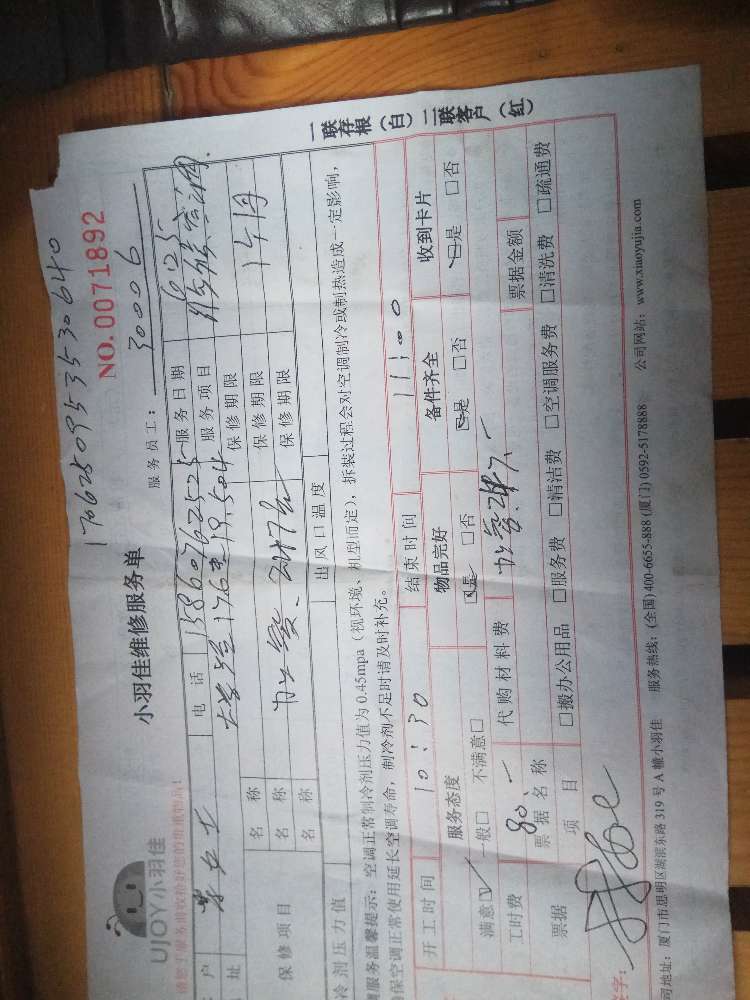 17062509535530640
NO.0071892
UJOY小羽佳
小羽佳维修服务单
服务员工: 30006
户 女士 电话 15860762525 服务日期 6.25
址 176# 19.504 服务项目
保修项目
名称 保修期限 1个月
名称 加氟 保修期限
名称 保修期限
冷剂压力值 出风口温度
服务温馨提示: 空调正常制冷剂压力值为0.45mpa(视环境、机型而定), 拆装过程会对空调制冷或制热造成一定影响,
保空调正常使用延长空调寿命, 制冷剂不足时请及时补充。
开工时间 10:30 结束时间 11:00
服务态度 物品完好 备件齐全 收到卡片
满意☑ 一般□ 不满意□ ☑是 □否 ☑是 □否 ☑是 □否
工时费 80.- 代购材料费 加氟
票据 票据名称 票据金额
项目 □搬办公用品 □服务费 □清洁费 □空调服务费 □清洗费 □疏通费
字:
司地址: 厦门市思明区湖滨东路319号A幢小羽佳 服务热线: (全国)400-6655-888 (厦门)0592-5178888 公司网站: www.xiaoyujia.com
一联存根(白) 二联客户(红)